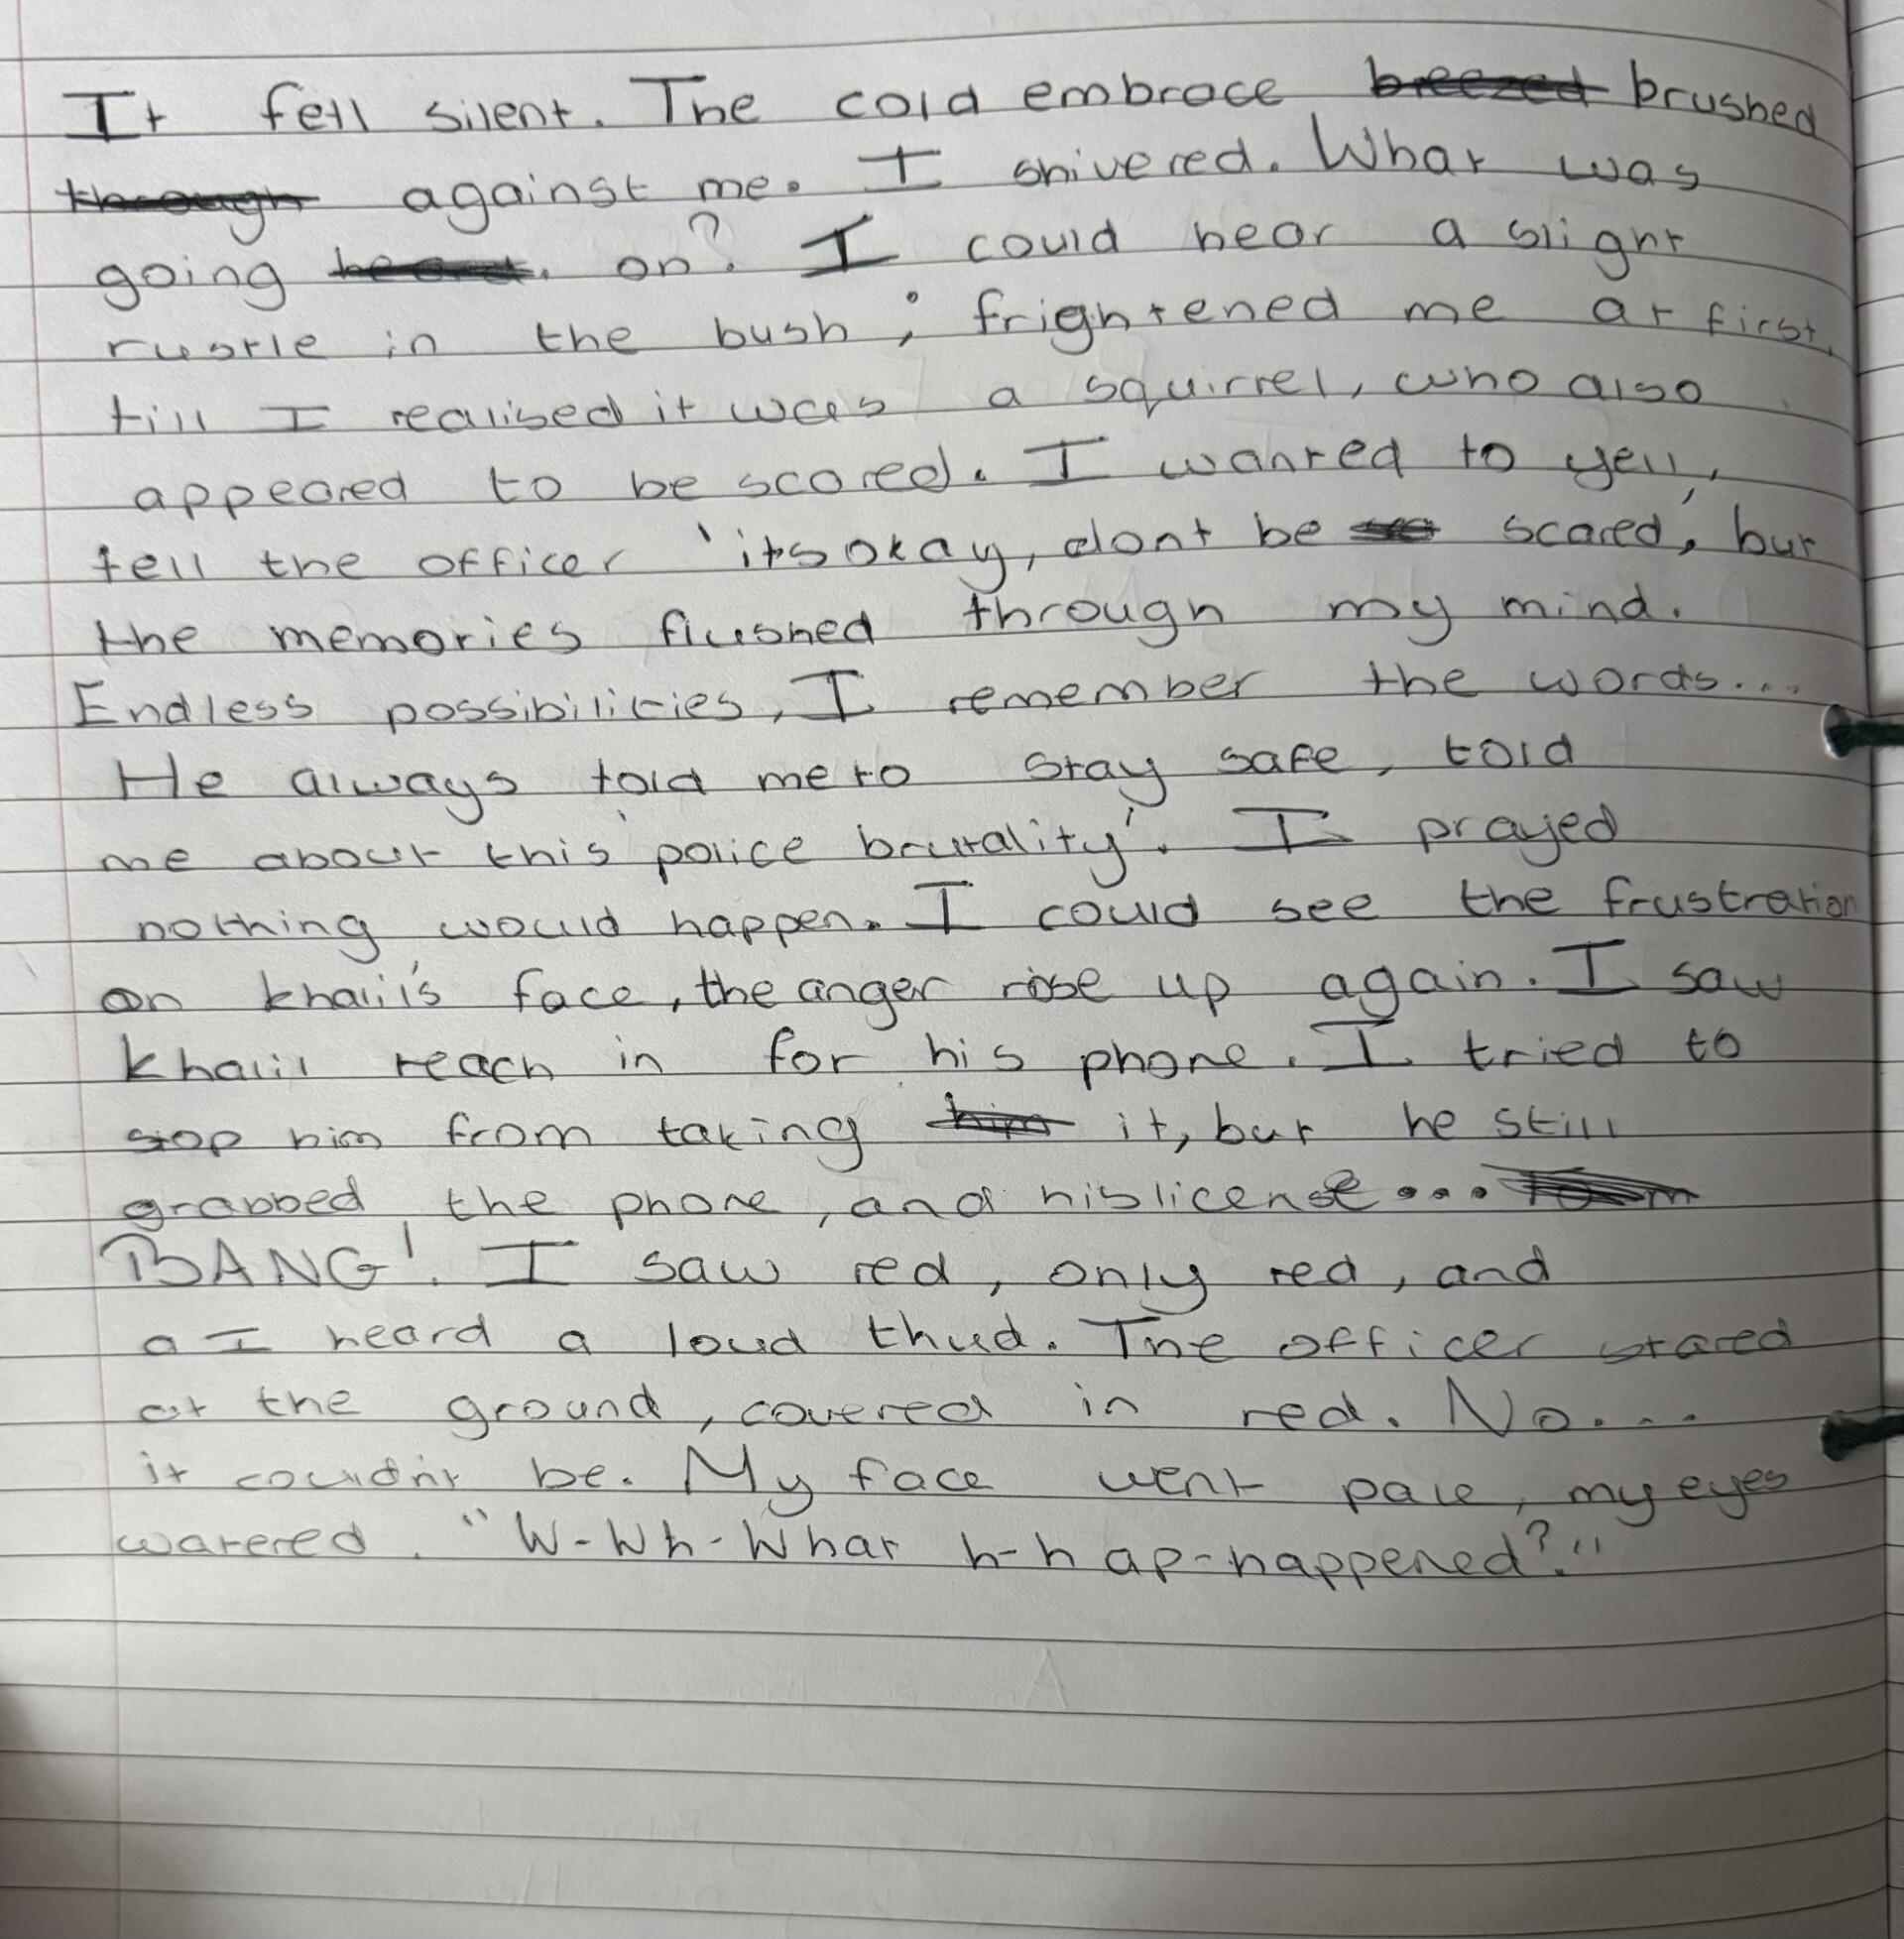 It fell silent. The cold embrace breezed brushed
through against me. I shivered. What was
going on? I could hear a slight
rustle in the bush; frightened me at first,
till I realised it was a squirrel, who also
appeared to be scared. I wanted to yell,
tell the officer 'its okay, dont be scared', but
the memories flushed through my mind.
Endless possibilities, I remember the words...
He always told me to stay safe, told
me about this 'police brutality'. I prayed
nothing would happen. I could see the frustration
on khalil's face, the anger rose up again. I saw
khalil reach in for his phone. I tried to
stop him from taking him it, but he still
grabbed the phone, and his license...
BANG!. I saw red, only red, and
a I heard a loud thud. The officer stared
at the ground, covered in red. No....
it couldn't be. My face went pale, my eyes
watered. "W-Wh-What h-hap-happened?."